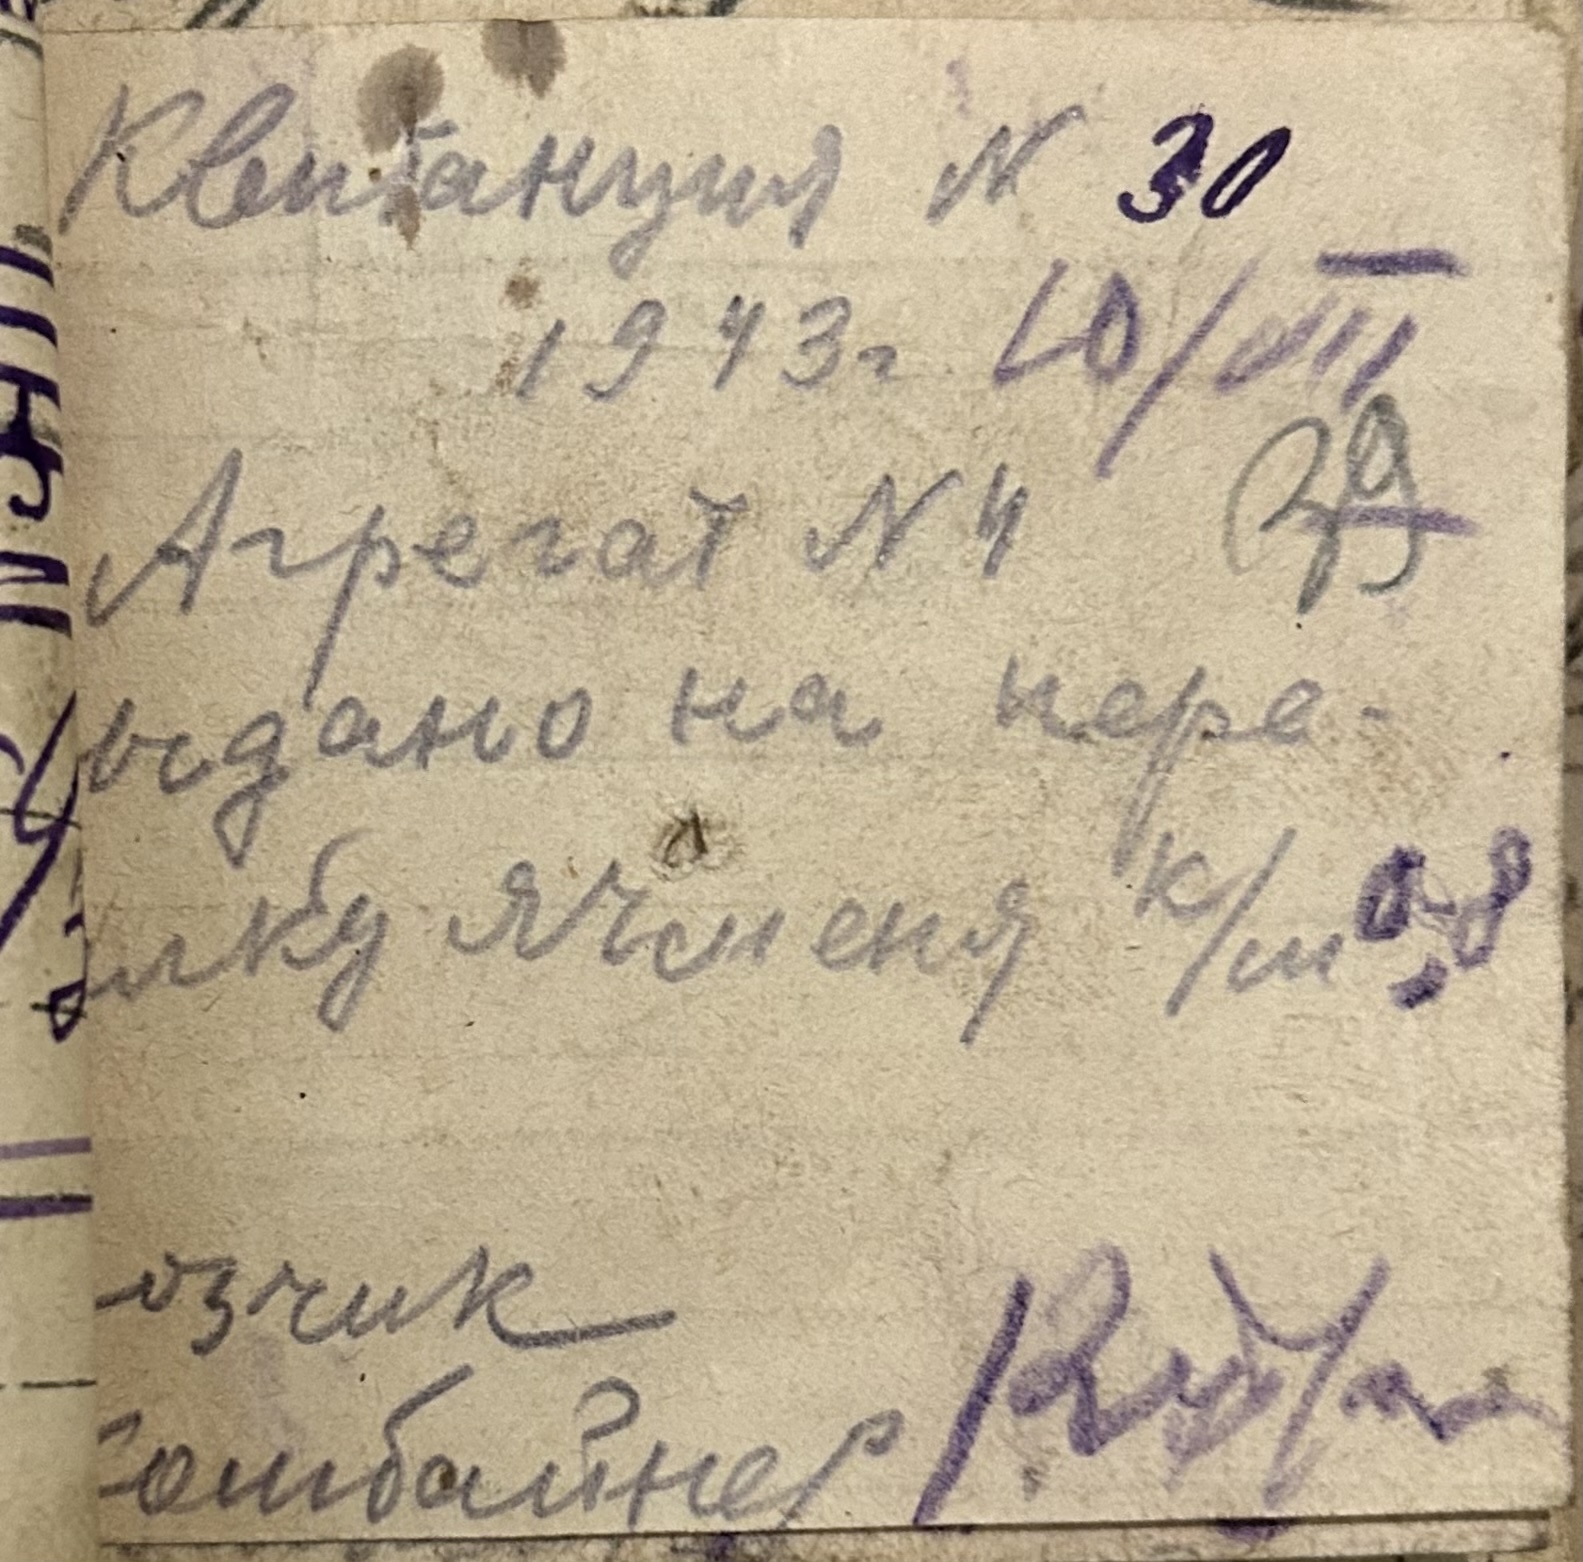 Квитанция N 30
1943г 10/VIII
Агрегат N 4 39
ыдано на пере-
лку ячменя к/ш 0,8
озчик
омбайнер